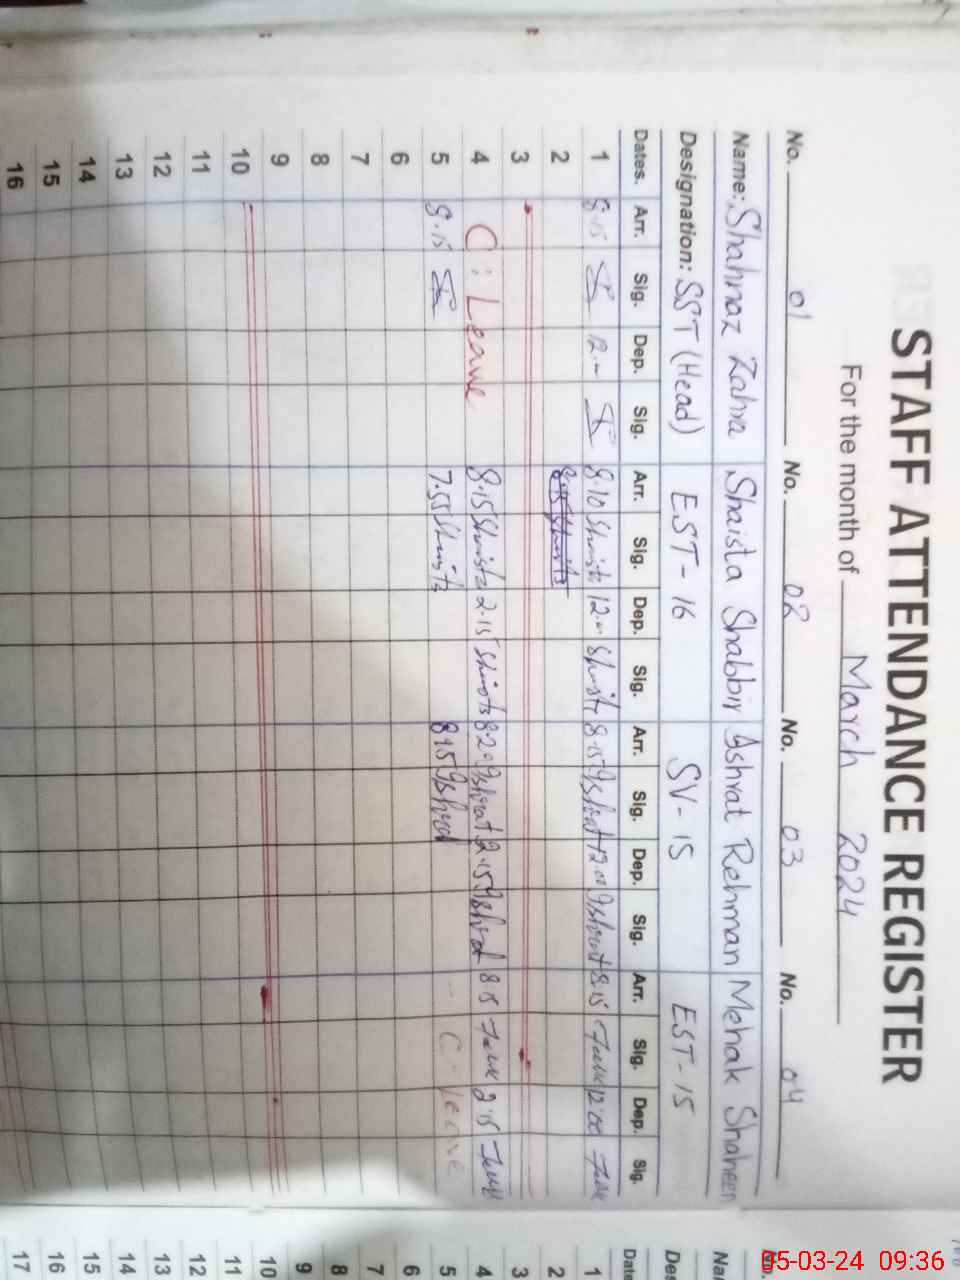 STAFF ATTENDANCE REGISTER
For the month of March 2024
No. 01 No. 02 No. 03 No. 04
Name: Shahnaz Zahra Shaista Shabbir Ishrat Rehman Mehak Shaheen
Designation: SST (Head) EST-16 SV-15 EST-15
Dates. Arr. Sig. Dep. Sig. Arr. Sig. Dep. Sig. Arr. Sig. Dep. Sig. Arr. Sig. Dep. Sig.
1 8.15 12.00 8.10 Shaista 12.00 Shaista 8.15 Ishrat 12.00 Ishrat 8:15 12:00
2
3
4 C. Leave 8.15 Shaista 2.15 Shaista 8.20 Ishrat 2.15 Ishrat 8:15 2:15
5 8.15 7.55 Shaista 8.15 Ishrat C. leave
6
7
8
9
10
11
12
13
14
15
16
Date
1
2
3
4
5
6
7
8
9
10
11
12
13
14
15
16
17
05-03-24 09:36